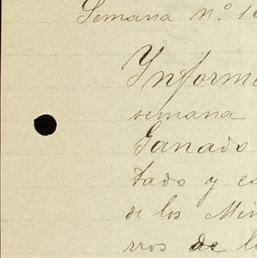 Semana n.º 1
Informe
semana
Ganado
tado y es
de los Min
rros de lo